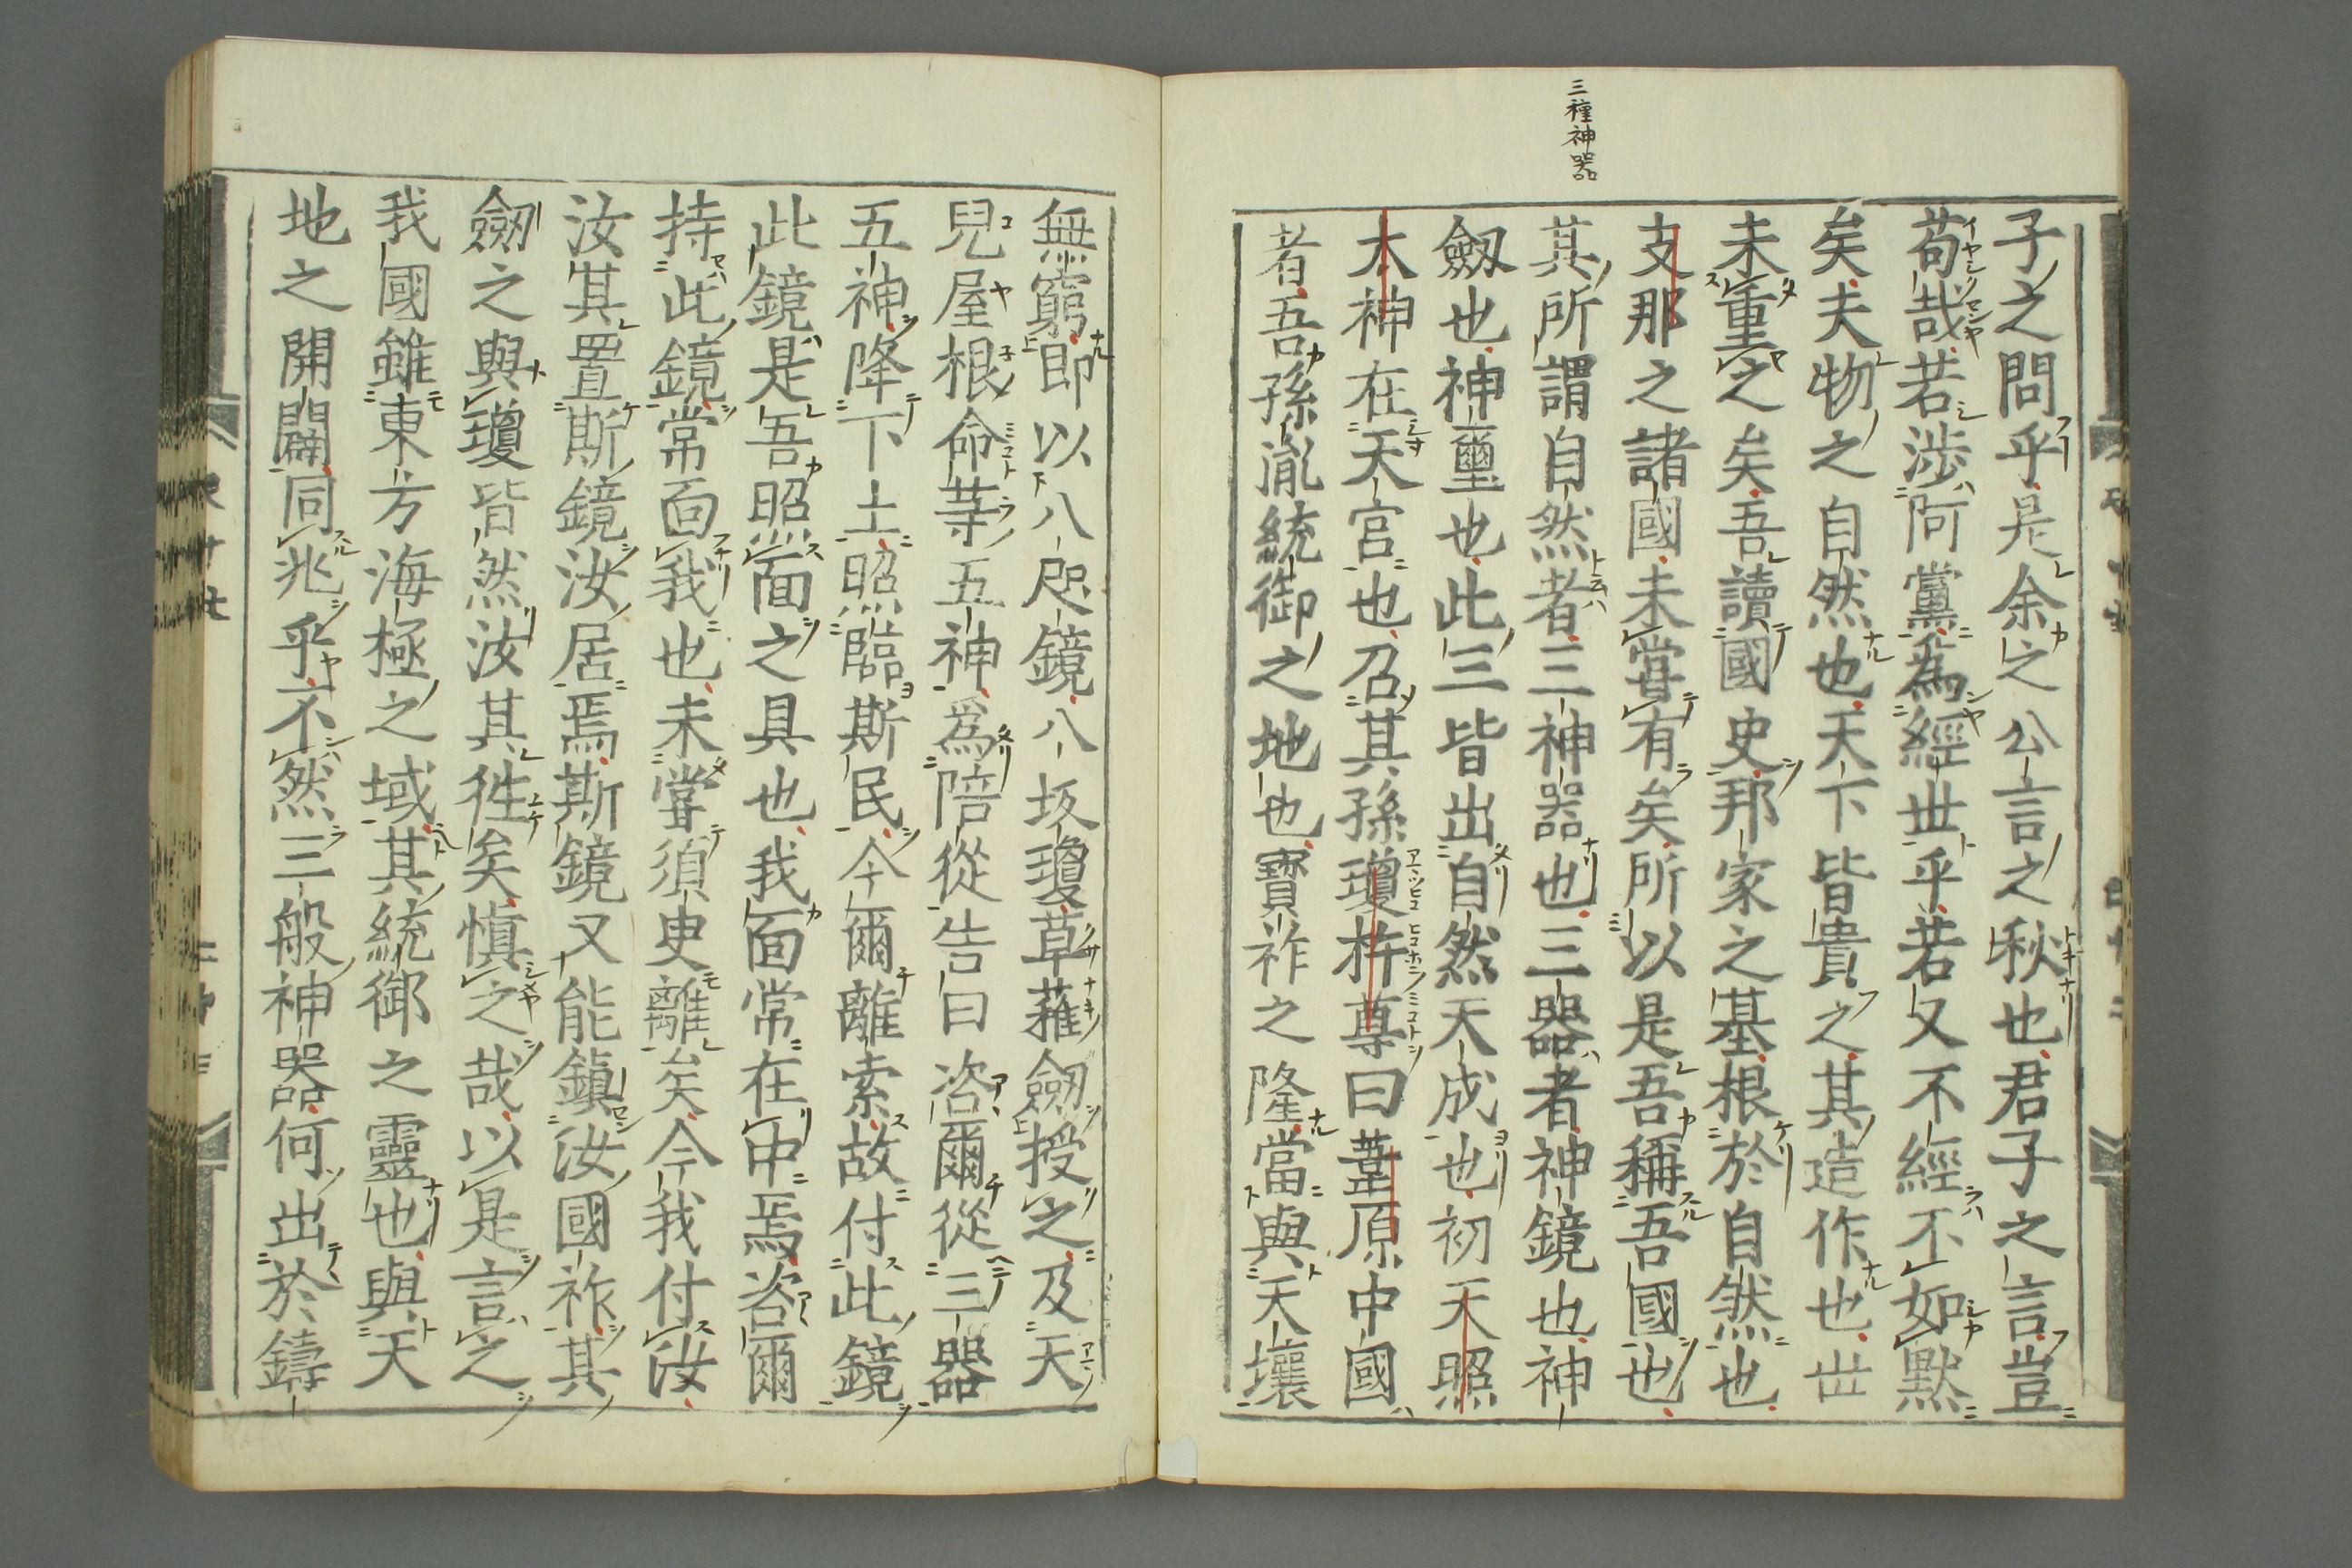 三種神器
子之問乎是余之公言之秋也君子之言豈
苟哉若渉阿黨爲經世乎若又不經不如默
矣夫物之自然也天下皆貴之其造作也世
未重之矣吾讀國史邦家之基根於自然也
支那之諸國未甞有矣所以是吾稱吾國也
其所謂自然者三神器也三器者神鏡也神
劔也神璽也此三皆出自然天成也初天照
大神在天宮也召其孫瓊杵尊曰葦原中國
者吾孫胤統御之地也寶祚之隆當與天壤
無窮即以八咫鏡八坂瓊草薙劔授之及天
兒屋根命等五神爲陪從告曰咨爾從三器
五神降下土照臨斯民今爾離索故付此鏡
此鏡是吾照面之具也我面常在中焉咨爾
持此鏡常面我也未甞須臾離矣今我付汝
汝其置斯鏡汝居焉斯鏡又能鎭汝國祚其
劔之與瓊皆然汝其徃矣愼之哉以是言之
我國雖東方海極之域其統御之靈也與天
地之開闢同兆乎不然三般神器何出於鑄